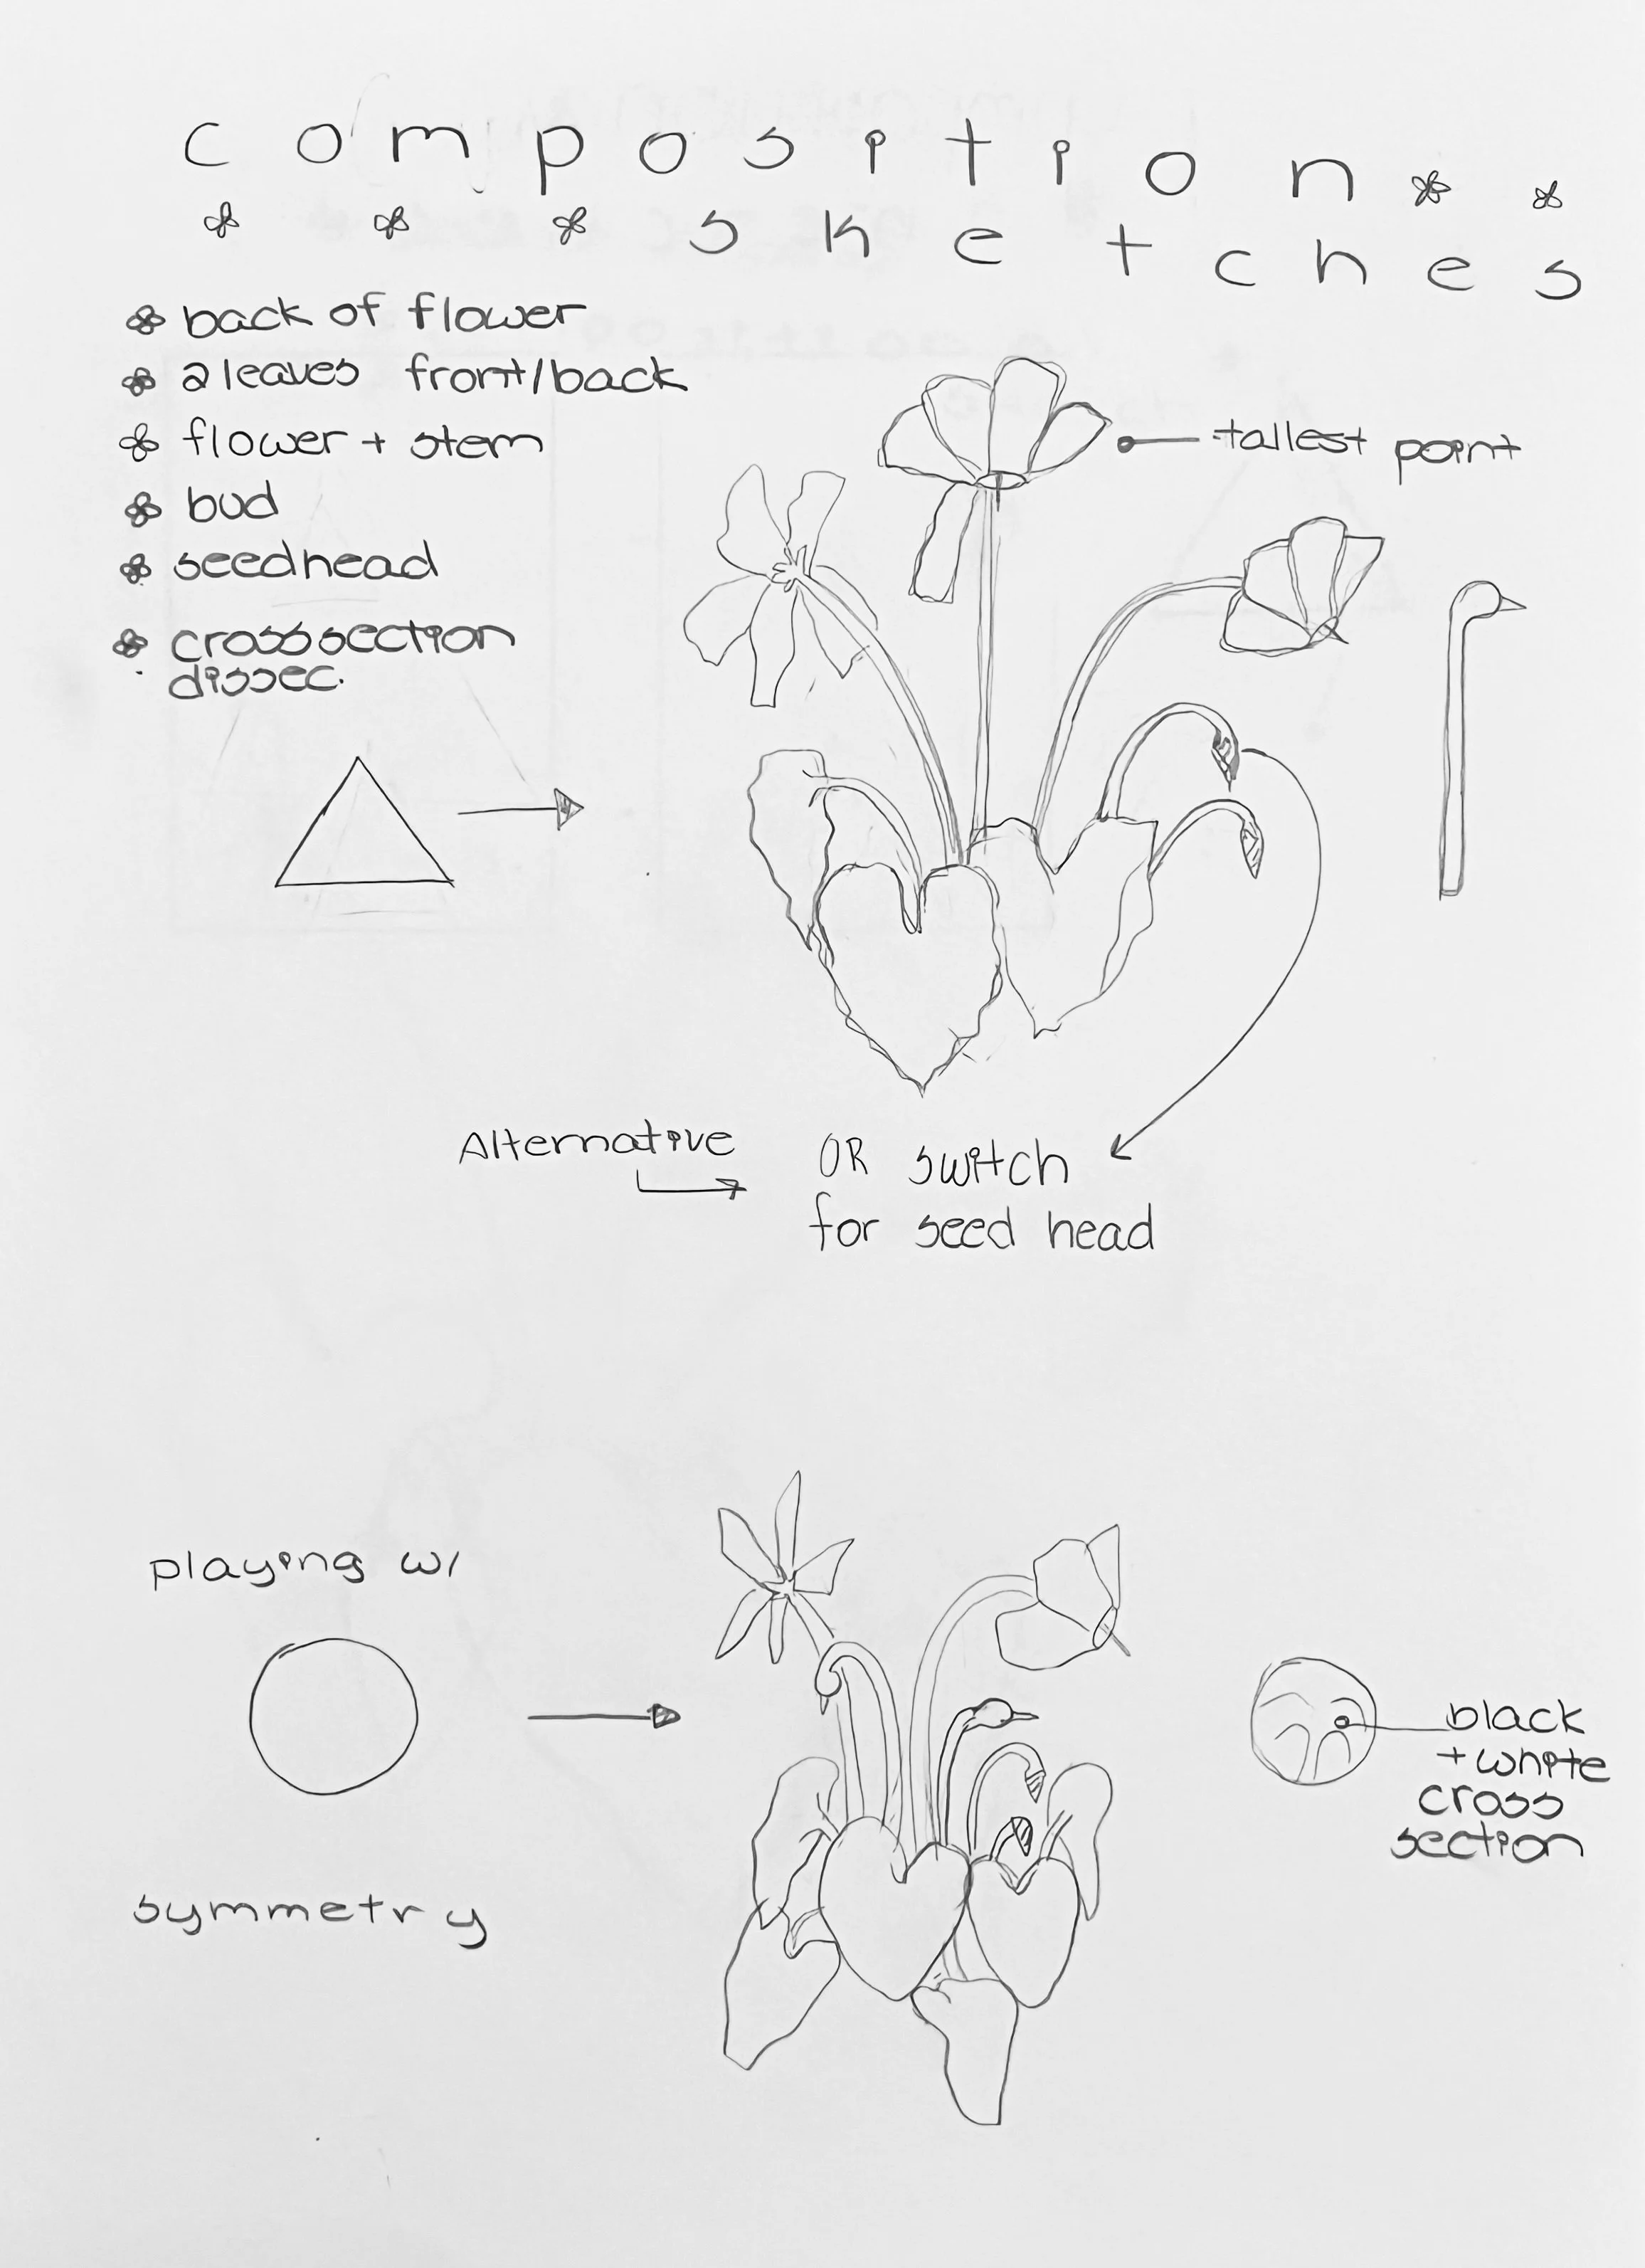 composition
sketches
back of flower
2 leaves front/back
flower + stem
bud
seedhead
crosssection
dissec.
tallest point
Alternative
OR switch
for seed head
playing w/
symmetry
black
+ white
cross
section